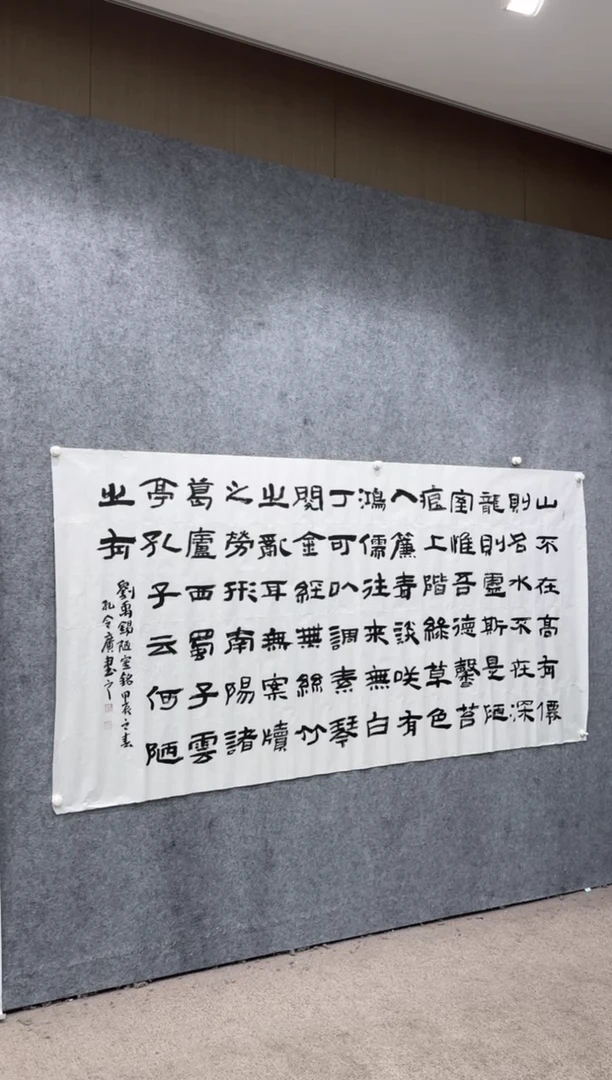 山不在高有僊
則名水不在深
龍則靈斯是陋
室惟吾德馨苔
痕上階綠草色
入簾青談咲有
鴻儒往來無白
丁可以調素琴
閱金經無絲竹
之亂耳無案牘
之勞形南陽諸
葛廬西蜀子雲
亭孔子云何陋
之有
劉禹錫陋室銘甲辰之春
孔令廣書